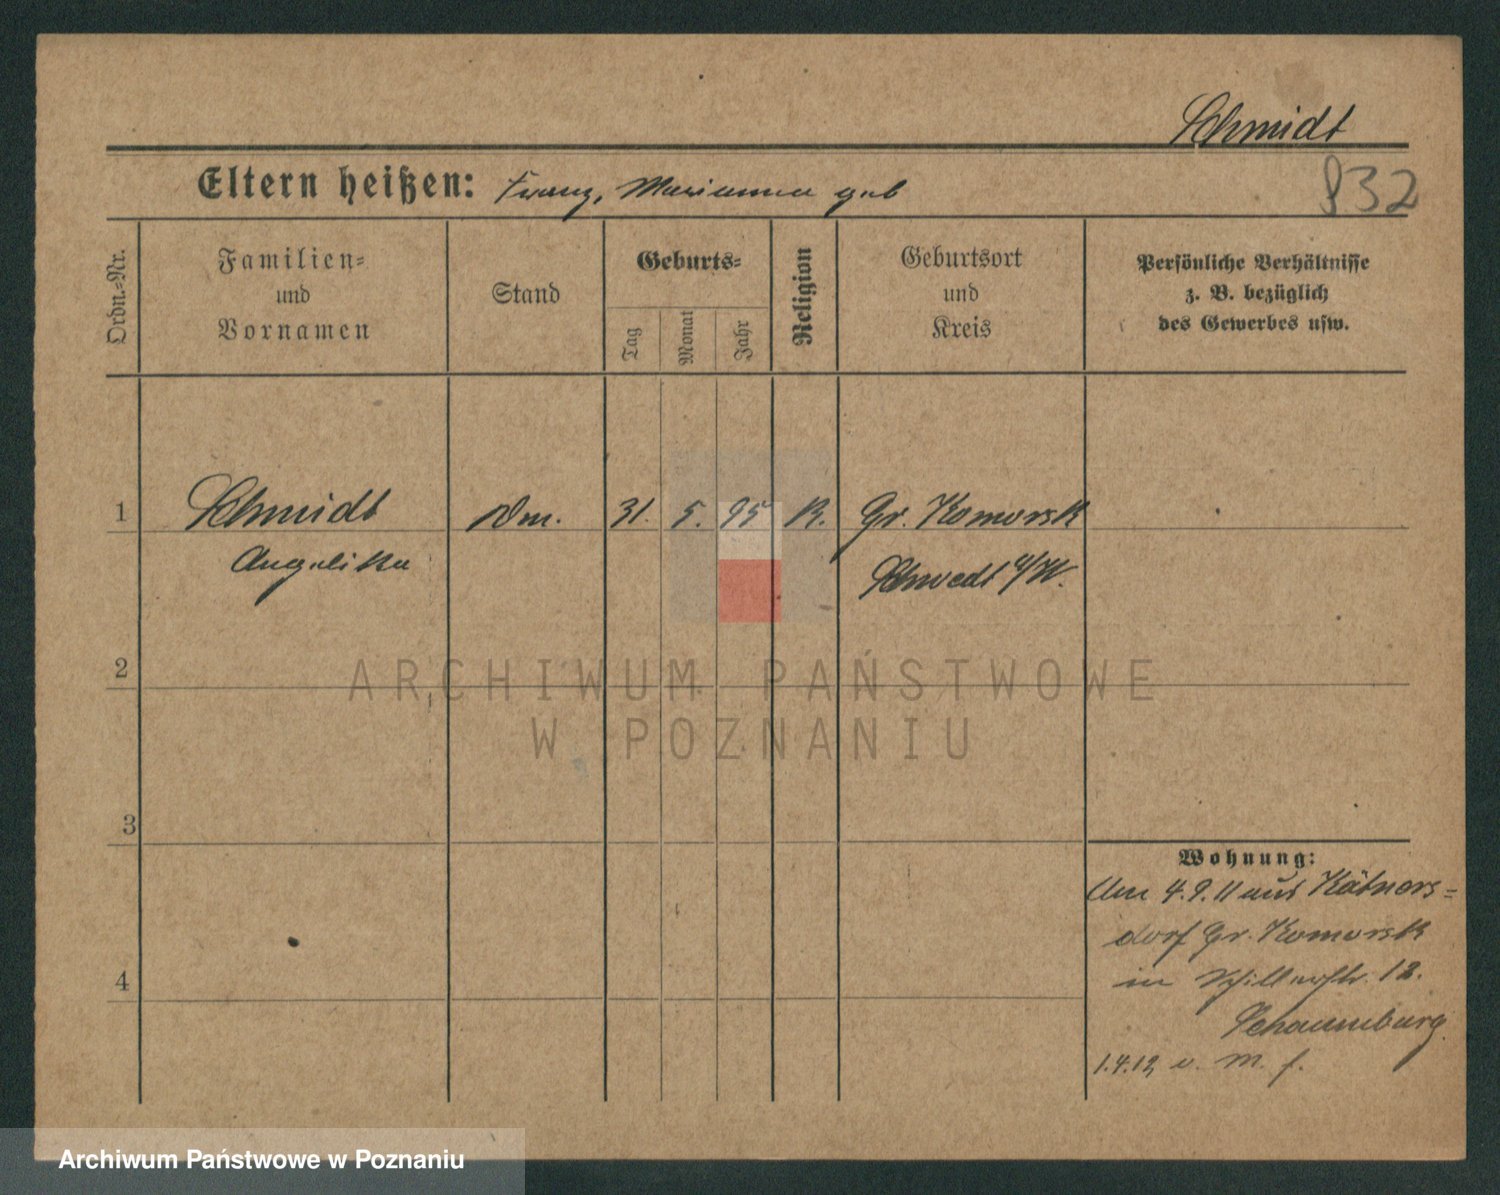 Schmidt
Eltern heißen: Franz, Marianna geb
832
Ordn.-Nr.
Familien- und Vornamen
Stand
Geburts-
Tag
Monat
Jahr
Religion
Geburtsort und Kreis
Persönliche Verhältnisse
z. B. bezüglich
des Gewerbes usw.
1 Schmidt Dm. 31. 5. 95 K. Gr. Komorsk
Angelika Schwedt a/W.
2
3
4
ARCHIWUM PAŃSTWOWE
W POZNANIU
Wohnung:
Am 4.9.11 aus Kätners=
dorf Gr. Komorsk
in Schillerstr. 12.
Schaumburg
1.4.12 v. M. f.
Archiwum Państwowe w Poznaniu